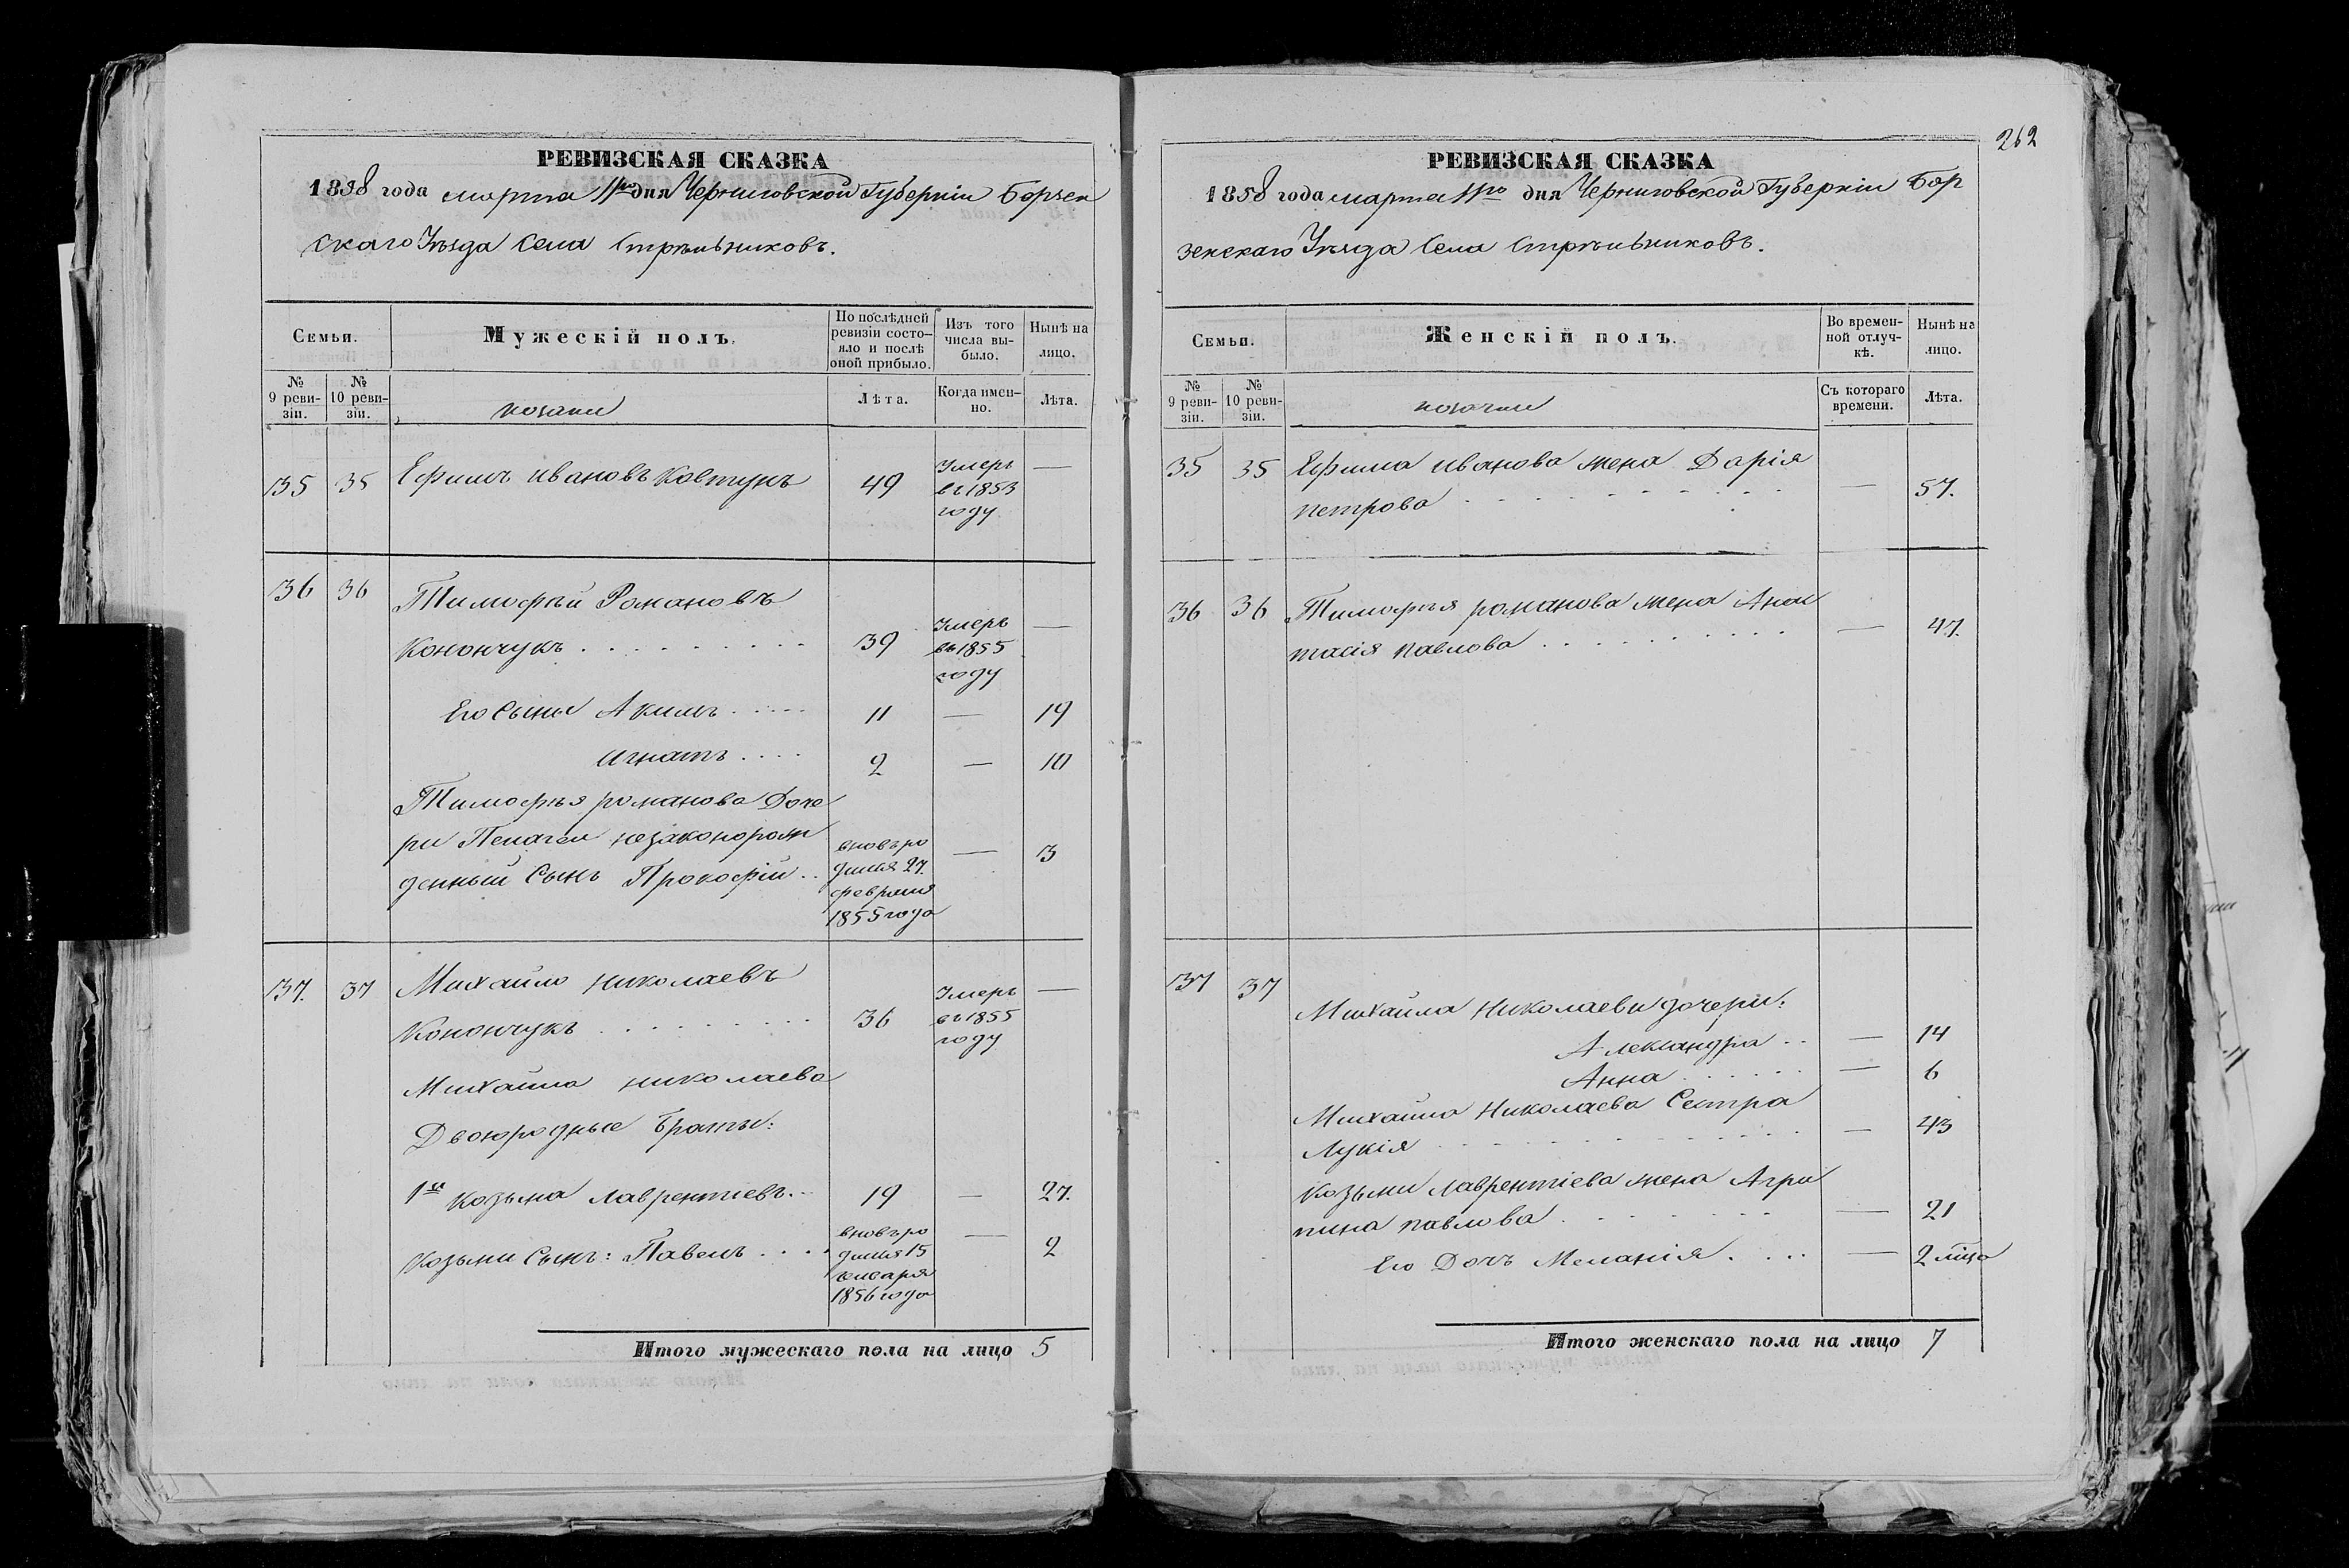 РЕВИЗСКАЯ СКАЗКА
1858 года марта 11го дня Черниговской Губернiи Борзен
скаго Уѣзда Села Стрѣльниковъ.
Семьи.
Мужескій полъ.
По послѣдней
ревизіи состо-
яло и послѣ
оной прибыло.
Изъ того
числа вы-
было.
Нынѣ на
лицо.
№
9 реви-
зіи.
№
10 реви-
зіи.
козаки
Лѣта.
Когда имен-
но.
Лѣта.
35 35 Ефимъ Ивановъ Ковтунъ 49 Умеръ въ 1853 году —
36 36 Тимофѣй Романовъ
Конончукъ 39 Умеръ въ 1855 году —
Его Сыны Акимъ 11 — 19
Игнатъ 2 — 10
Тимофѣя романова Доче
ри Пелагеи незаконорож
денный Сынъ Прокофій вновь ро — 3
дился 27.
февраля
1855 года
37. 37 Михайло Николаевъ
Конончукъ 36 Умеръ въ 1855 году —
Михайла николаева
Двоюродные Браты:
1й Козьма Лаврентіевъ 19 — 27.
Козьмы Сынъ: Павелъ вновь ро — 2
дился 15
января
1856 года
Итого мужескаго пола на лицо 5
262
РЕВИЗСКАЯ СКАЗКА
1858 года марта 11го дня Черниговской Губерніи Бор
зенскаго Уѣзда Села Стрѣльниковъ.
Семьи.
Женскій полъ.
Во времен-
ной отлуч-
кѣ.
Нынѣ на
лицо.
№
9 реви-
зіи.
№
10 реви-
зіи.
козачки
Съ котораго
времени.
Лѣта.
35 35 Ефима Иванова жена Дарія
петрова — 57.
36 36 Тимофѣя романова жена Анас
тасія павлова — 47.
37 37
Михаила Николаевы дочери:
Александра — 14
Анна — 6
Михайла Николаева Сестра
Лукія — 43
Козьмы Лаврентіева жена Агри
пина павлова — 21
Его Дочъ Меланія — 2
Итого женскаго пола на лицо 7